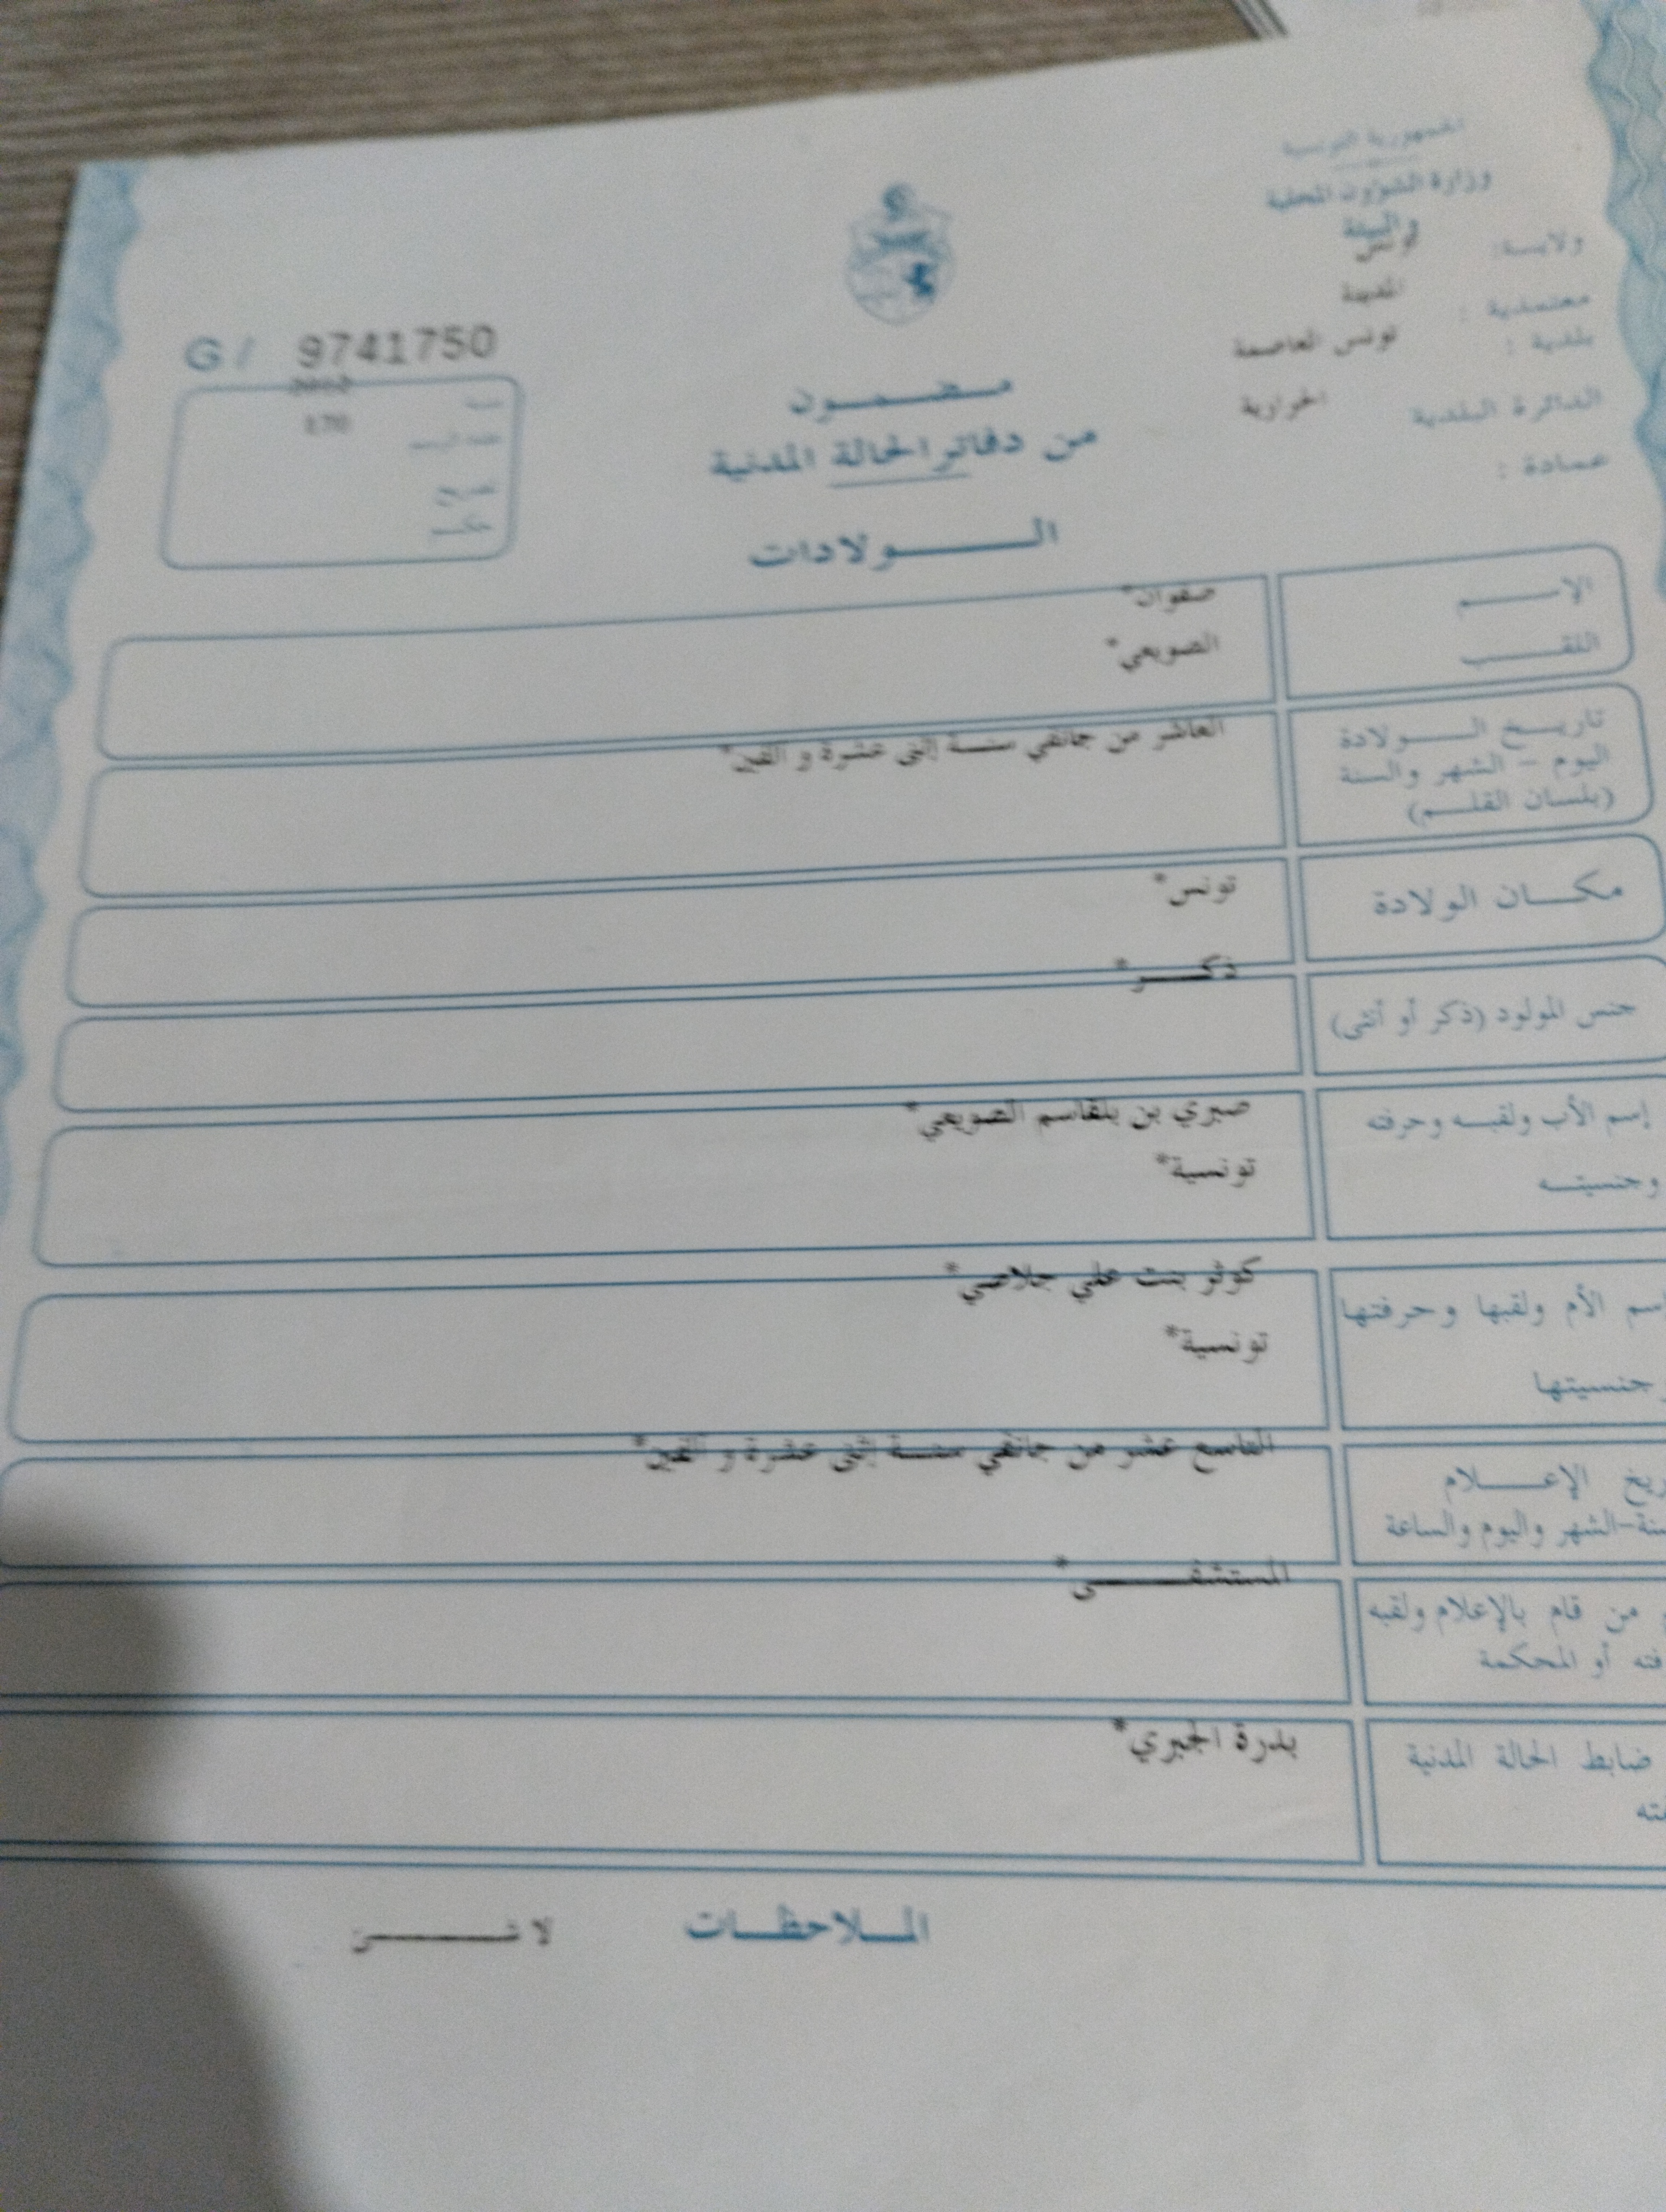 الجمهورية التونسية
وزارة الشؤون المحلية
والبيئة
ولايـــة: تونس
معتمدية : المدينة
بلدية : تونس العاصمة
الدائرة البلدية الحرايرية
عمادة :
G / 9741750
2012
سنة
عدد الرسم
تصريح
حكم
مـضـمـون
من دفاتر الحالة المدنية
الـولادات
الاسم صفوان*
اللقب الصويعي*
تاريخ الولادة العاشر من جانفي سنة إثنى عشرة و ألفين*
اليوم - الشهر والسنة
(بلسان القلم)
مكان الولادة تونس*
جنس المولود (ذكر أو أنثى) ذكر*
إسم الأب ولقبه وحرفته صبري بن بلقاسم الصويعي*
وجنسيته تونسية*
اسم الأم ولقبها وحرفتها كوثر بنت علي جلاصي*
وجنسيتها تونسية*
ريخ الإعلام التاسع عشر من جانفي سنة إثنى عشرة و ألفين*
نة-الشهر واليوم والساعة
من قام بالإعلام ولقبه المستشفى*
فته أو المحكمة
ضابط الحالة المدنية بدرة الجبري*
الملاحظات